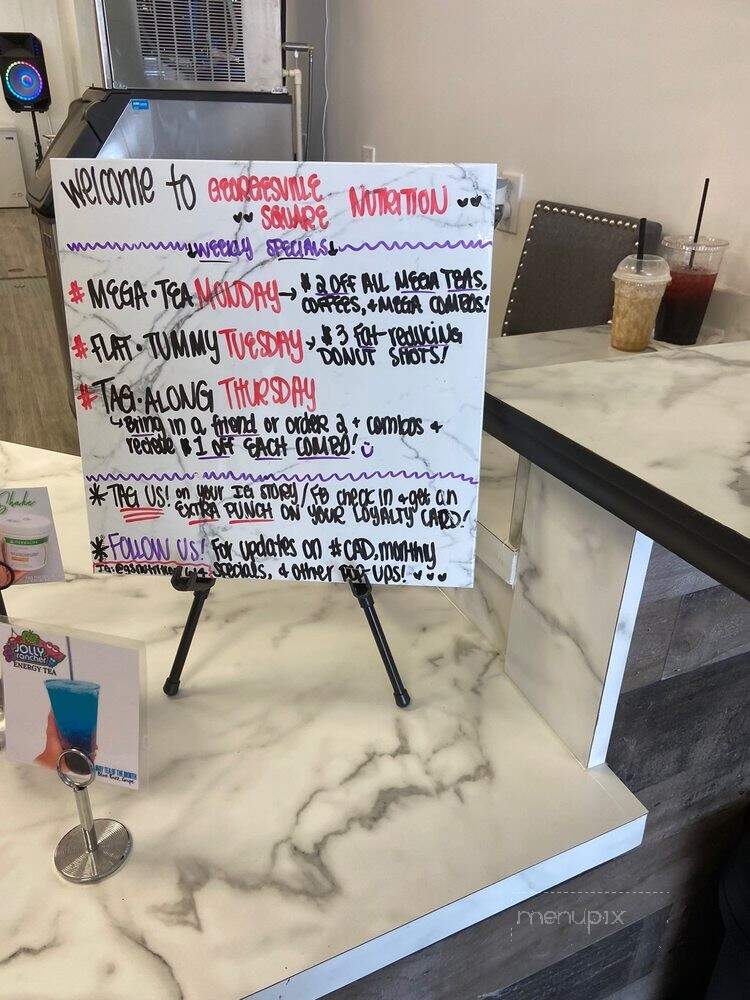 Welcome to GEORGESVILLE SQUARE NUTRITION
WEEKLY SPECIALS
# MEGA•TEA MONDAY → $2 OFF ALL MEGA TEAS,
COFFEES, & MEGA COMBOS!
# FLAT•TUMMY TUESDAY → $3 Fat-reducing
DONUT SHOTS!
# TAG•ALONG THURSDAY
Bring in a friend or order 2+ combos &
receive $1 OFF EACH COMBO!
* TAG US! on your IG STORY/FB check in & get an
EXTRA PUNCH ON YOUR LOYALTY CARD!
* FOLLOW US! For updates on #CAD, monthly
IG: specials, & other POP-UPS!
Shake
HERBALIFE
JOLLY
rancher
ENERGY TEA
TEA OF THE MONTH
menupix